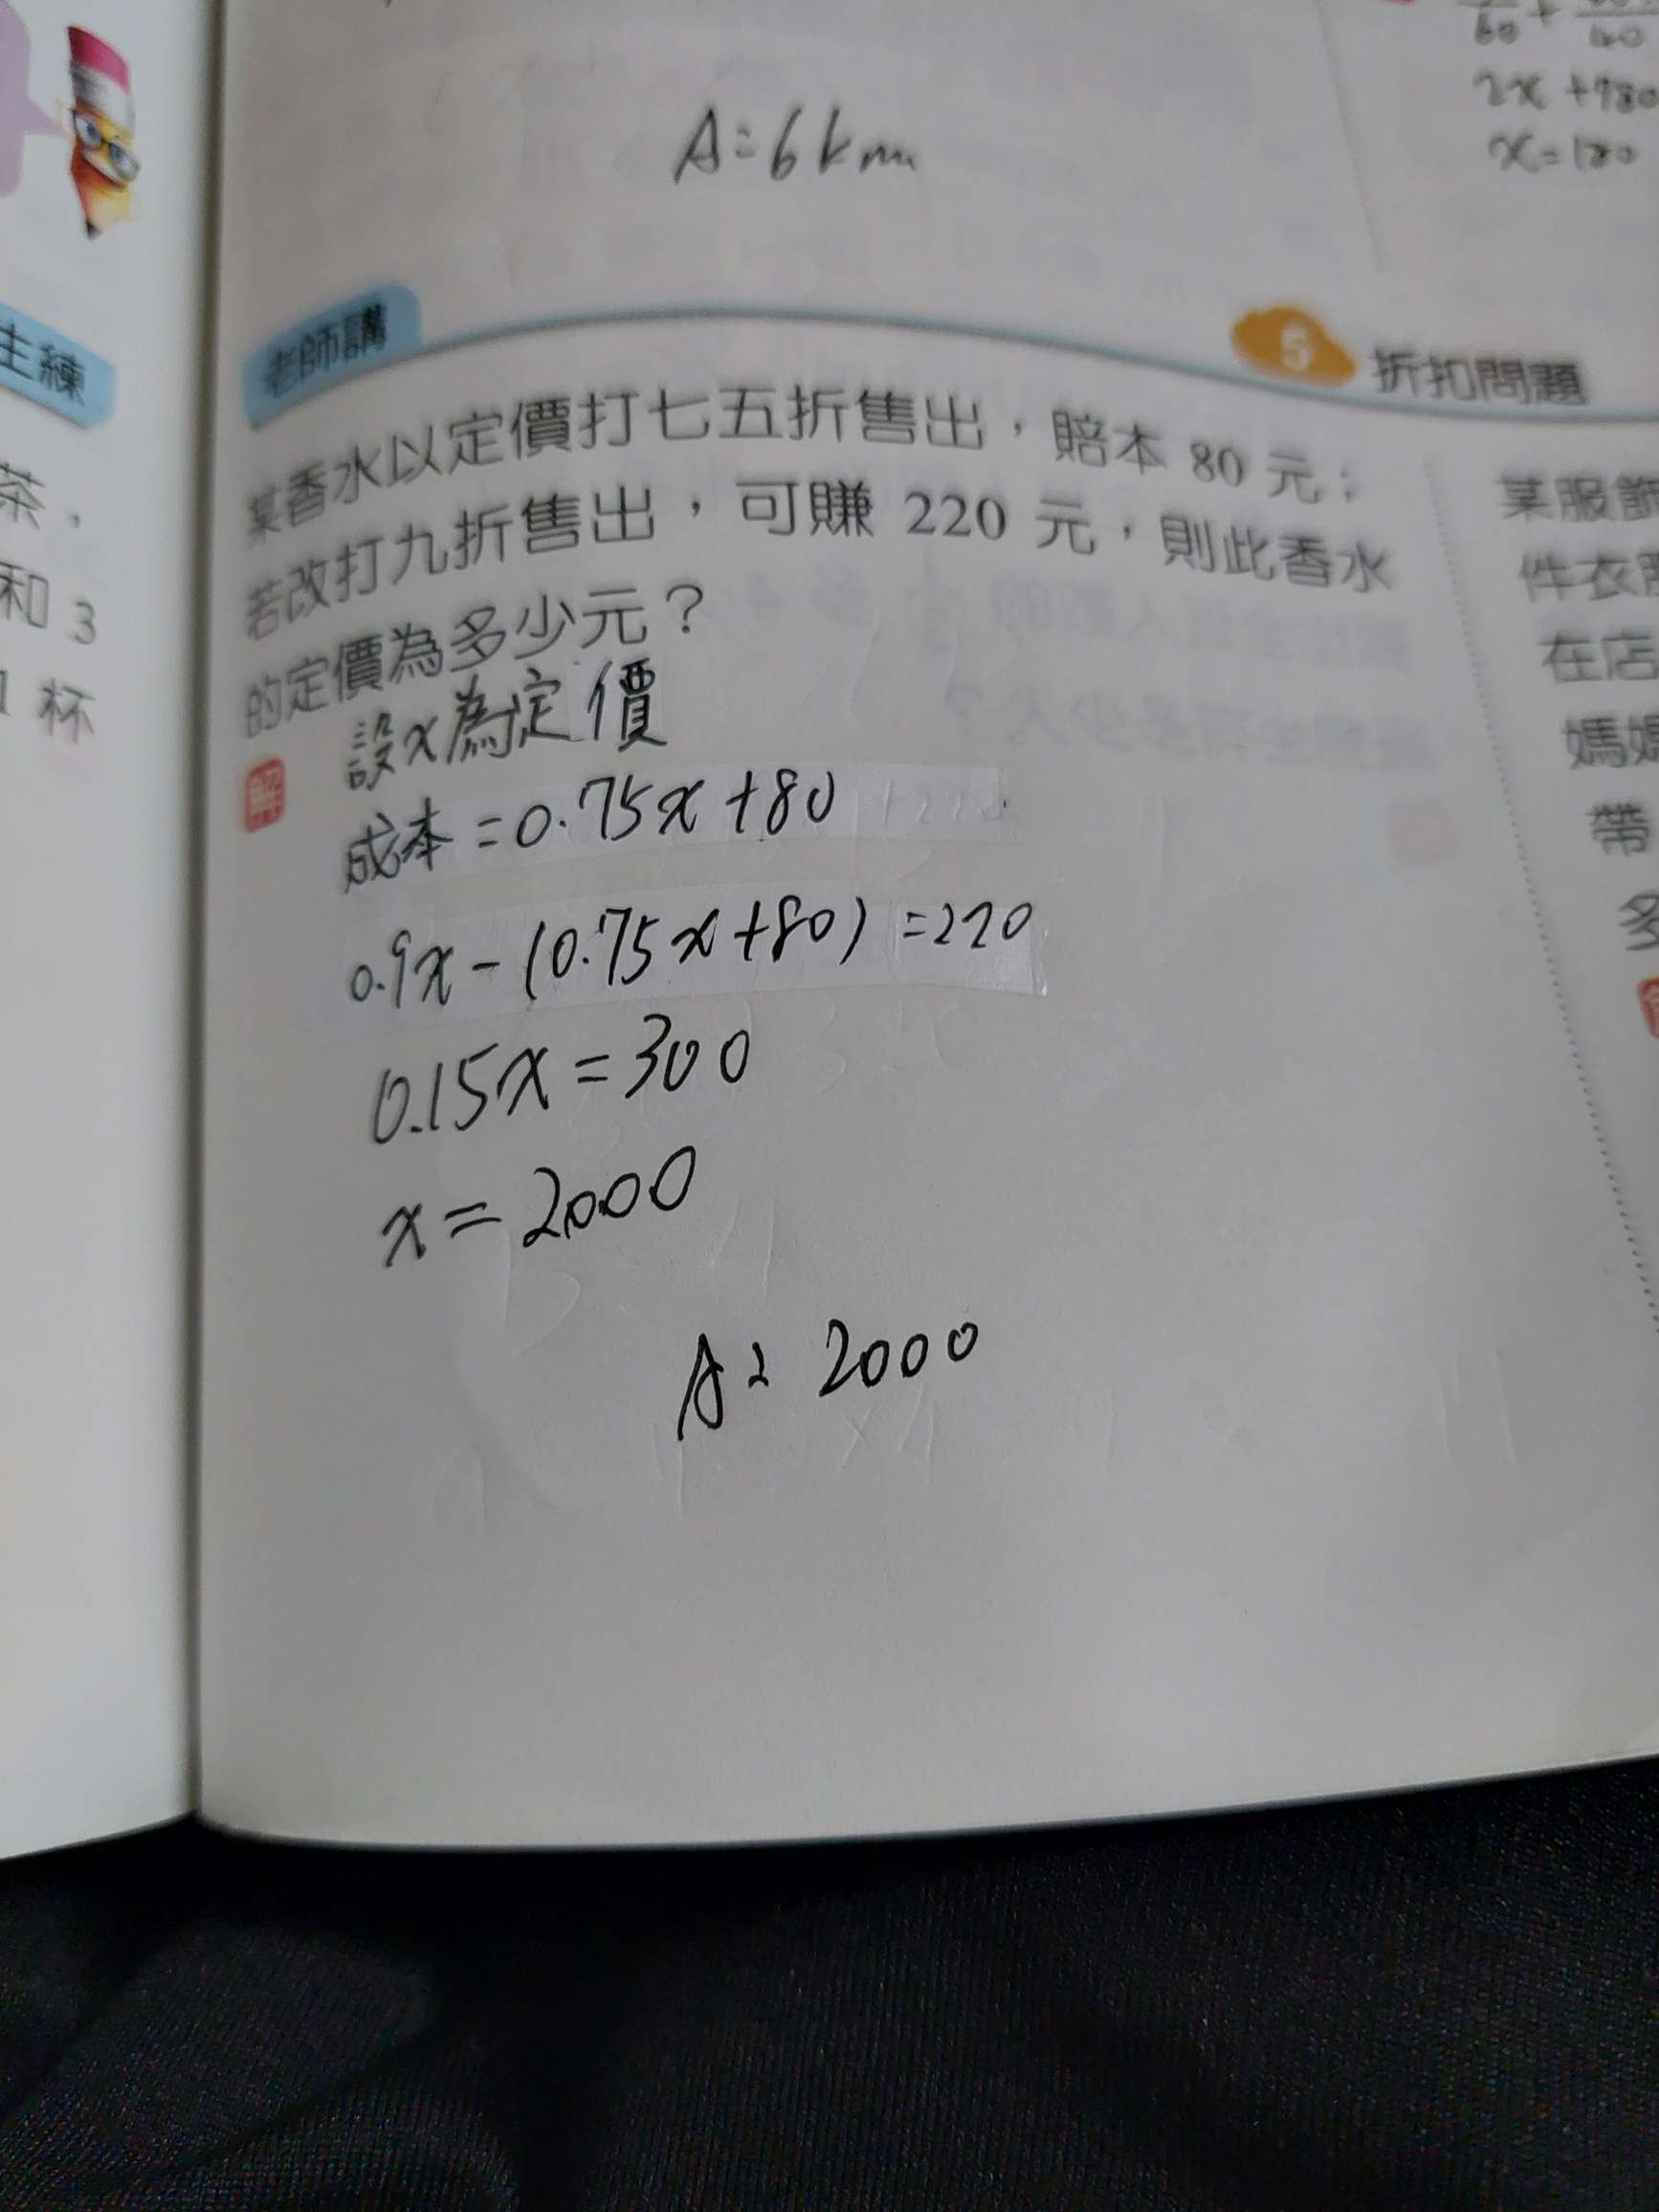 主練
茶，
和 3
1 杯
A=6km
60 + 40
2x+780
x=180
老師講
5 折扣問題
某香水以定價打七五折售出，賠本 80 元；
若改打九折售出，可賺 220 元，則此香水
的定價為多少元？
解 設x為定價
成本=0.75x+80
0.9x-(0.75x+80)=220
0.15x=300
x=2000
A: 2000
某服飾
件衣服
在店
媽媽
帶
多